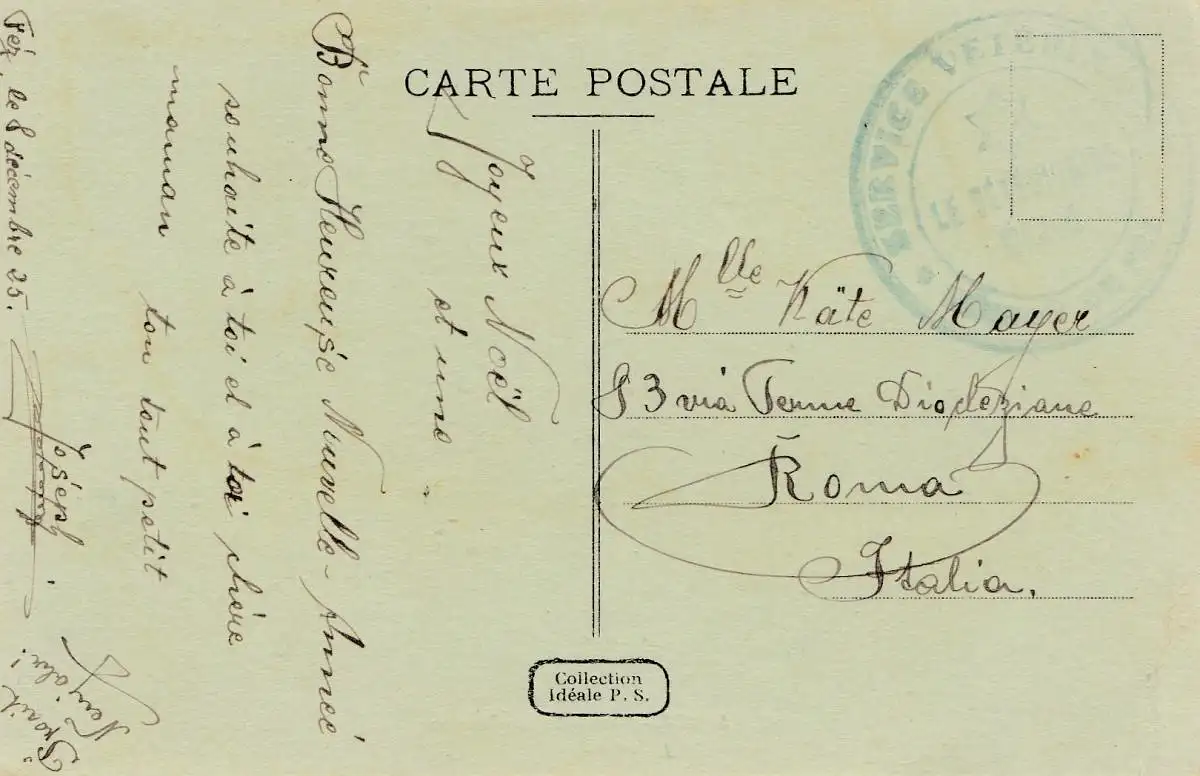 CARTE POSTALE
Joyeux Noël
et une
Bonne Heureuse Nouvelle-Année
souhaite à toi et à toi chère
maman ton tout petit
Joséph.
Fèz, le 8 décembre 25.
Prosit
Neujahr!
SERVICE VETERI
LE
Mlle Käte Mayer
83 via Terme Diocleziane
Roma
Italia.
Collection
Idéale P. S.